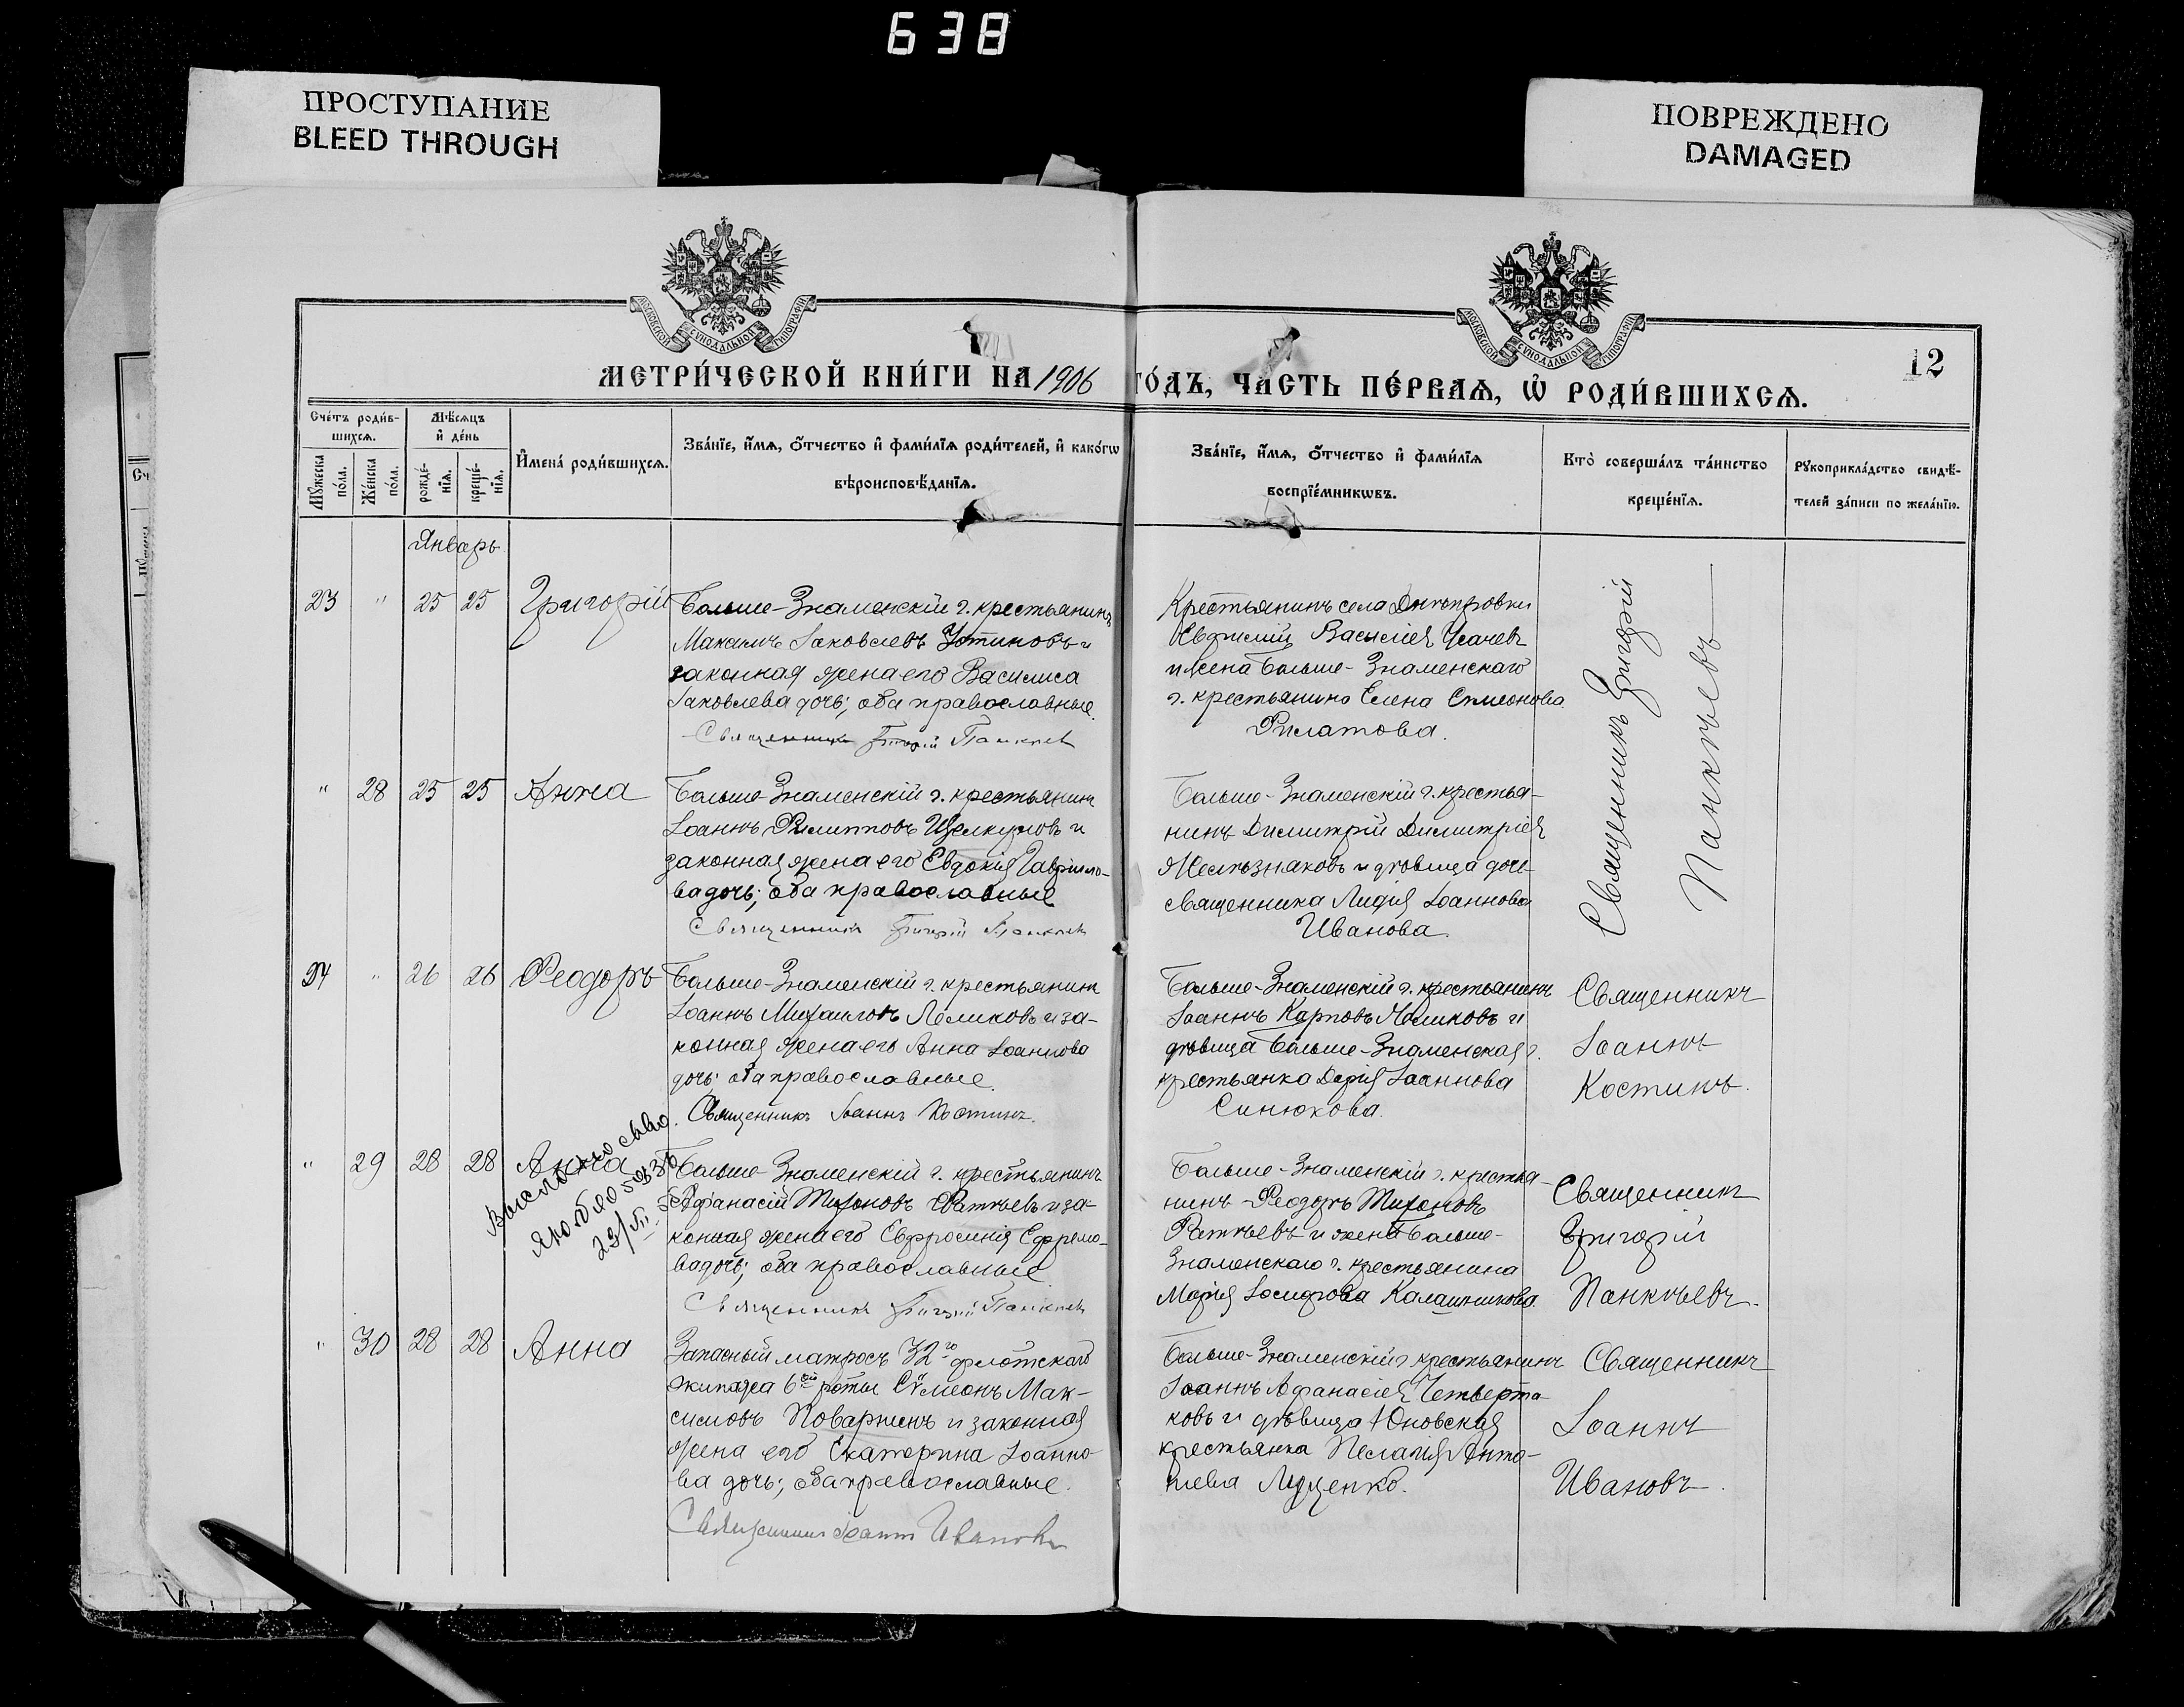 638
ПРОСТУПАНИЕ
BLEED THROUGH
ПОВРЕЖДЕНО
DAMAGED
МОСКОВСКОЙ СѴНОДАЛЬНОЙ ТИПОГРАФІИ
МОСКОВСКОЙ СѴНОДАЛЬНОЙ ТИПОГРАФІИ
МЕТРИ́ЧЕСКОЙ КНИ́ГИ НА 1906 ГО́ДЪ, ЧАСТЬ ПЕ́РВАѦ, Ѽ РОДИ́ВШИХСѦ.
12
Сче́тъ роди́в-
шихсѧ.
Мѣ́сѧцъ
и҆ де́нь
Мꙋ́жеска
по́ла.
Же́нска
по́ла.
рожде́-
нїѧ.
креще́-
нїѧ.
И҆мена̀ роди́вшихсѧ.
Зва́нїе, и҆́мѧ, ѻ҆́тчество и҆ фами́лїѧ роди́телей, и҆ како́гѡ
вѣроисповѣ́данїѧ.
Зва́нїе, и҆́мѧ, ѻ҆́тчество и҆ фами́лїѧ
воспрїе́мникѡвъ.
Кто̀ соверша́лъ та́инство
креще́нїѧ.
Рꙋкоприкла́дство свидѣ́-
телей за́писи по жела́нїю.
Январь
23 " 25 25 Григорій
Больше-Знаменскій г. крестьянинъ
Максимъ Іаковлевъ Устиновъ и
законная жена его Василиса
Іаковлева дочь; оба православные.
Священникъ Григорій Панкѣев
Крестьянинъ села Днѣпровки
Евфимій Василіев Усачевъ
и жена Больше-Знаменскаго
г. крестьянина Елена Симеонова
Филатова.
Священникъ Григорій
Панкѣевъ
" 28 25 25 Анна
Больше-Знаменскій г. крестьянинъ
Іоаннъ Филипповъ Щелкуновъ и
законная жена его Евдокія Гаврило-
ва дочь; оба православные
Священникъ Григорій Панкѣев
Больше-Знаменскій г. крестья-
нинъ Димитрій Димитріев
Желѣзняковъ и дѣвица дочь
священника Лидія Іоаннова
Иванова.
24 " 26 26 Феодоръ
Больше-Знаменскій г. крестьянинъ
Іоаннъ Михаиловъ Лёликовъ и за-
конная жена его Анна Іоаннова
дочь; оба православные.
Священникъ Іоаннъ Костинъ.
Больше-Знаменскій г. крестьянинъ
Іоаннъ Карповъ и
дѣвица Больше-Знаменская г.
крестьянка Дарія Іоаннова
Синюкова.
Священникъ
Іоаннъ
Костинъ.
" 29 28 28 Анна
Больше-Знаменскій г. крестьянинъ
Афанасій Тихоновъ Фатѣевъ и за-
конная жена его Евфросинія Ефремо-
ва дочь; оба православные
Священникъ Григорій Панкѣев
Больше-Знаменскій г. крестья-
нинъ Феодоръ Тихоновъ
Фатѣевъ и жена Больше-
Знаменскаго г. крестьянина
Марія Іосифова Калашникова.
Священникъ
Григорій
Панкѣевъ.
" 30 28 28 Анна
Запасный матросъ 32го флотскаго
экипажа 6ой роты Сѵмеонъ Мак-
симовъ Поваринъ и законная
жена его Екатерина Іоанно-
ва дочь; оба православные.
Священникъ Іоаннъ Ивановъ
Больше-Знаменскій г. крестьянинъ
Іоаннъ Афанасіев Четверта-
ковъ и дѣвица
крестьянка Пелагія Анто-
ніева Луценко.
Священникъ
Іоаннъ
Ивановъ.